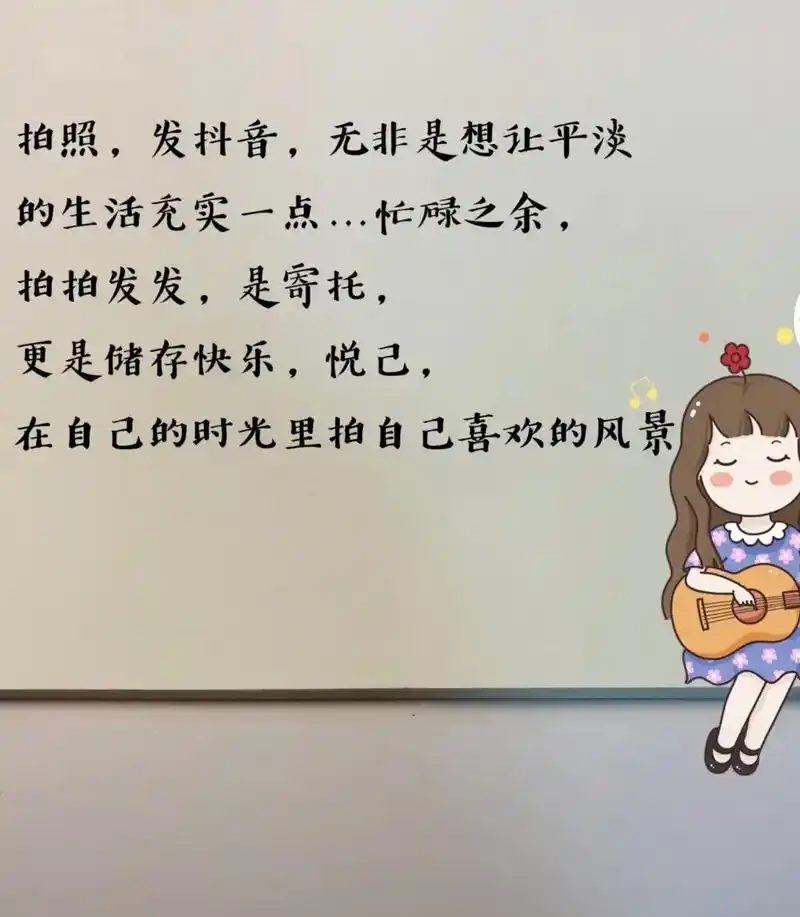 拍照，发抖音，无非是想让平淡
的生活充实一点...忙碌之余，
拍拍发发，是寄托，
更是储存快乐，悦己，
在自己的时光里拍自己喜欢的风景